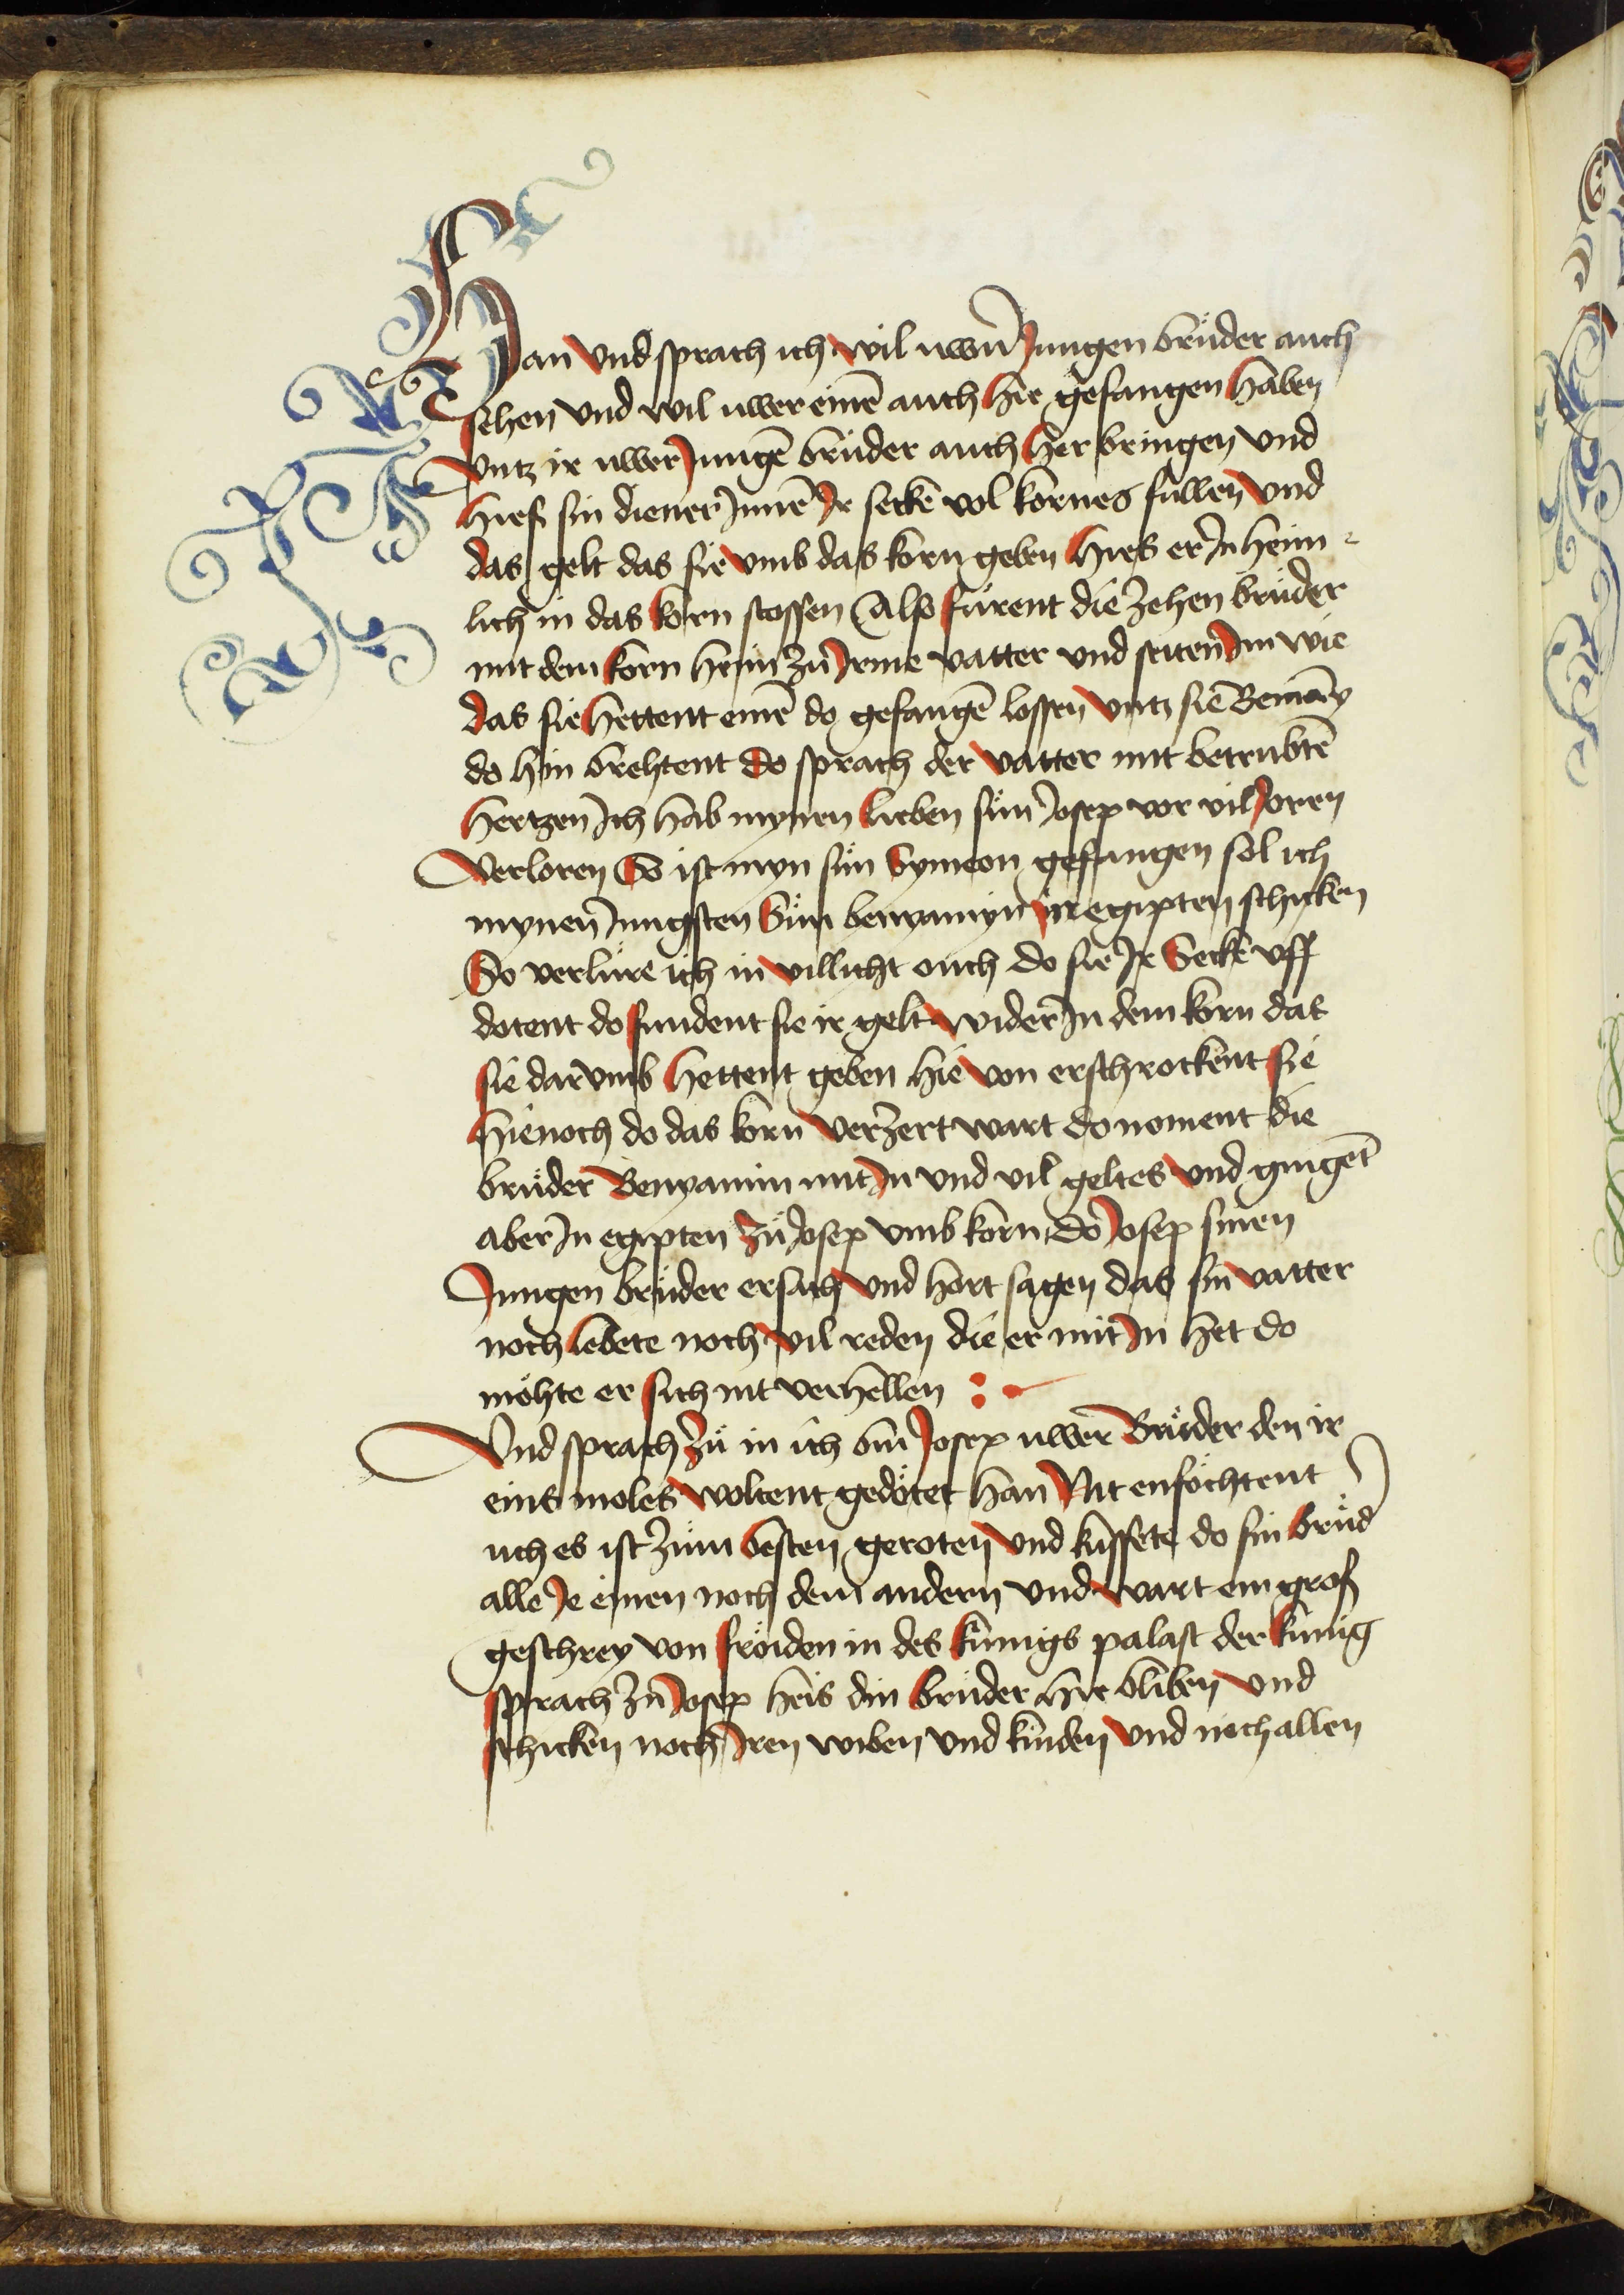 Han vnd sprach ich wil uwern Jungen brüder auch
sehen vnd wil uwer einē auch hie gefangen haben
vntz ir uwer Jungē brüder auch her bringen vnd
hieß sin diener Innē Ir secke vol kornes füllen vnd
das gelt das sie vmb das korn geben hies er In heim⸗
lich in das korn stossen Also fürent die zehen brüder
mit dem korn heim zü Irme vatter vnd seiten Im wie
das sie hettent einē do gefangē lossen vntz sie Beniamȳ
do hin brehtent do sprach der vatter mit betrübtē
hertzen Ich hab mynen lieben sün Josep vor vil Joren
Verloren So ist myn sün Symeon gefangen sol ich
mynen Jungsten Sün benyamyn in egipten schicken
So verlüre ich in villicht ouch do sie Ir Secke vff
dotent do fundent sie ir gelt wider In dem korn das
sie darvmb hettent geben hie von erschrockent sie
hienoch do das korn verzert wart do noment die
brüder Benyamin mit In vnd vil geltes vnd gingēt
aber In egipten zü Josep vmb korn do Josep sinen
Jungen brüder ersach vnd hort sagen das sin vatter
noch lebete noch vil reden die er mit In het do
möhte er sich nit verhellen :
Vnd sprach zü in ich bin Josep uwer Brüder den ir
eins moles woltent gedötet han Nit enföchtent
uch es ist züm besten geroten vnd küssete do sin brüd
alle Je einen noch dem andern vnd wart ein groß
geschrey von fröiden in des künigs palast der künig
sprach zü Josep heis din brüder hie bliben vnd
schicken noch Iren wiben vnd kinden vnd noch allen